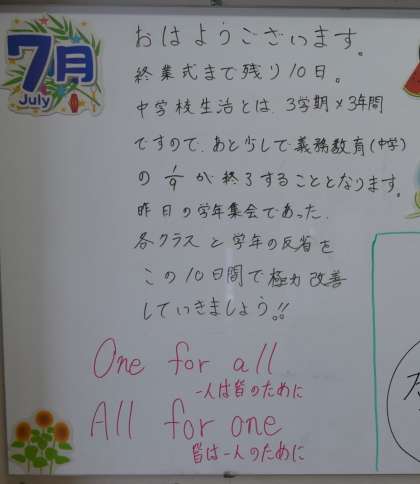 7月
July
おはようございます。
終業式まで残り10日。
中学校生活とは、3学期×3年間
ですので、あと少しで義務教育(中学)
の 1/9 が終了することとなります。
昨日の学年集会であった、
各クラスと学年の反省を
この10日間で極力改善
していきましょう!!
One for all
一人は皆のために
All for one
皆は一人のために